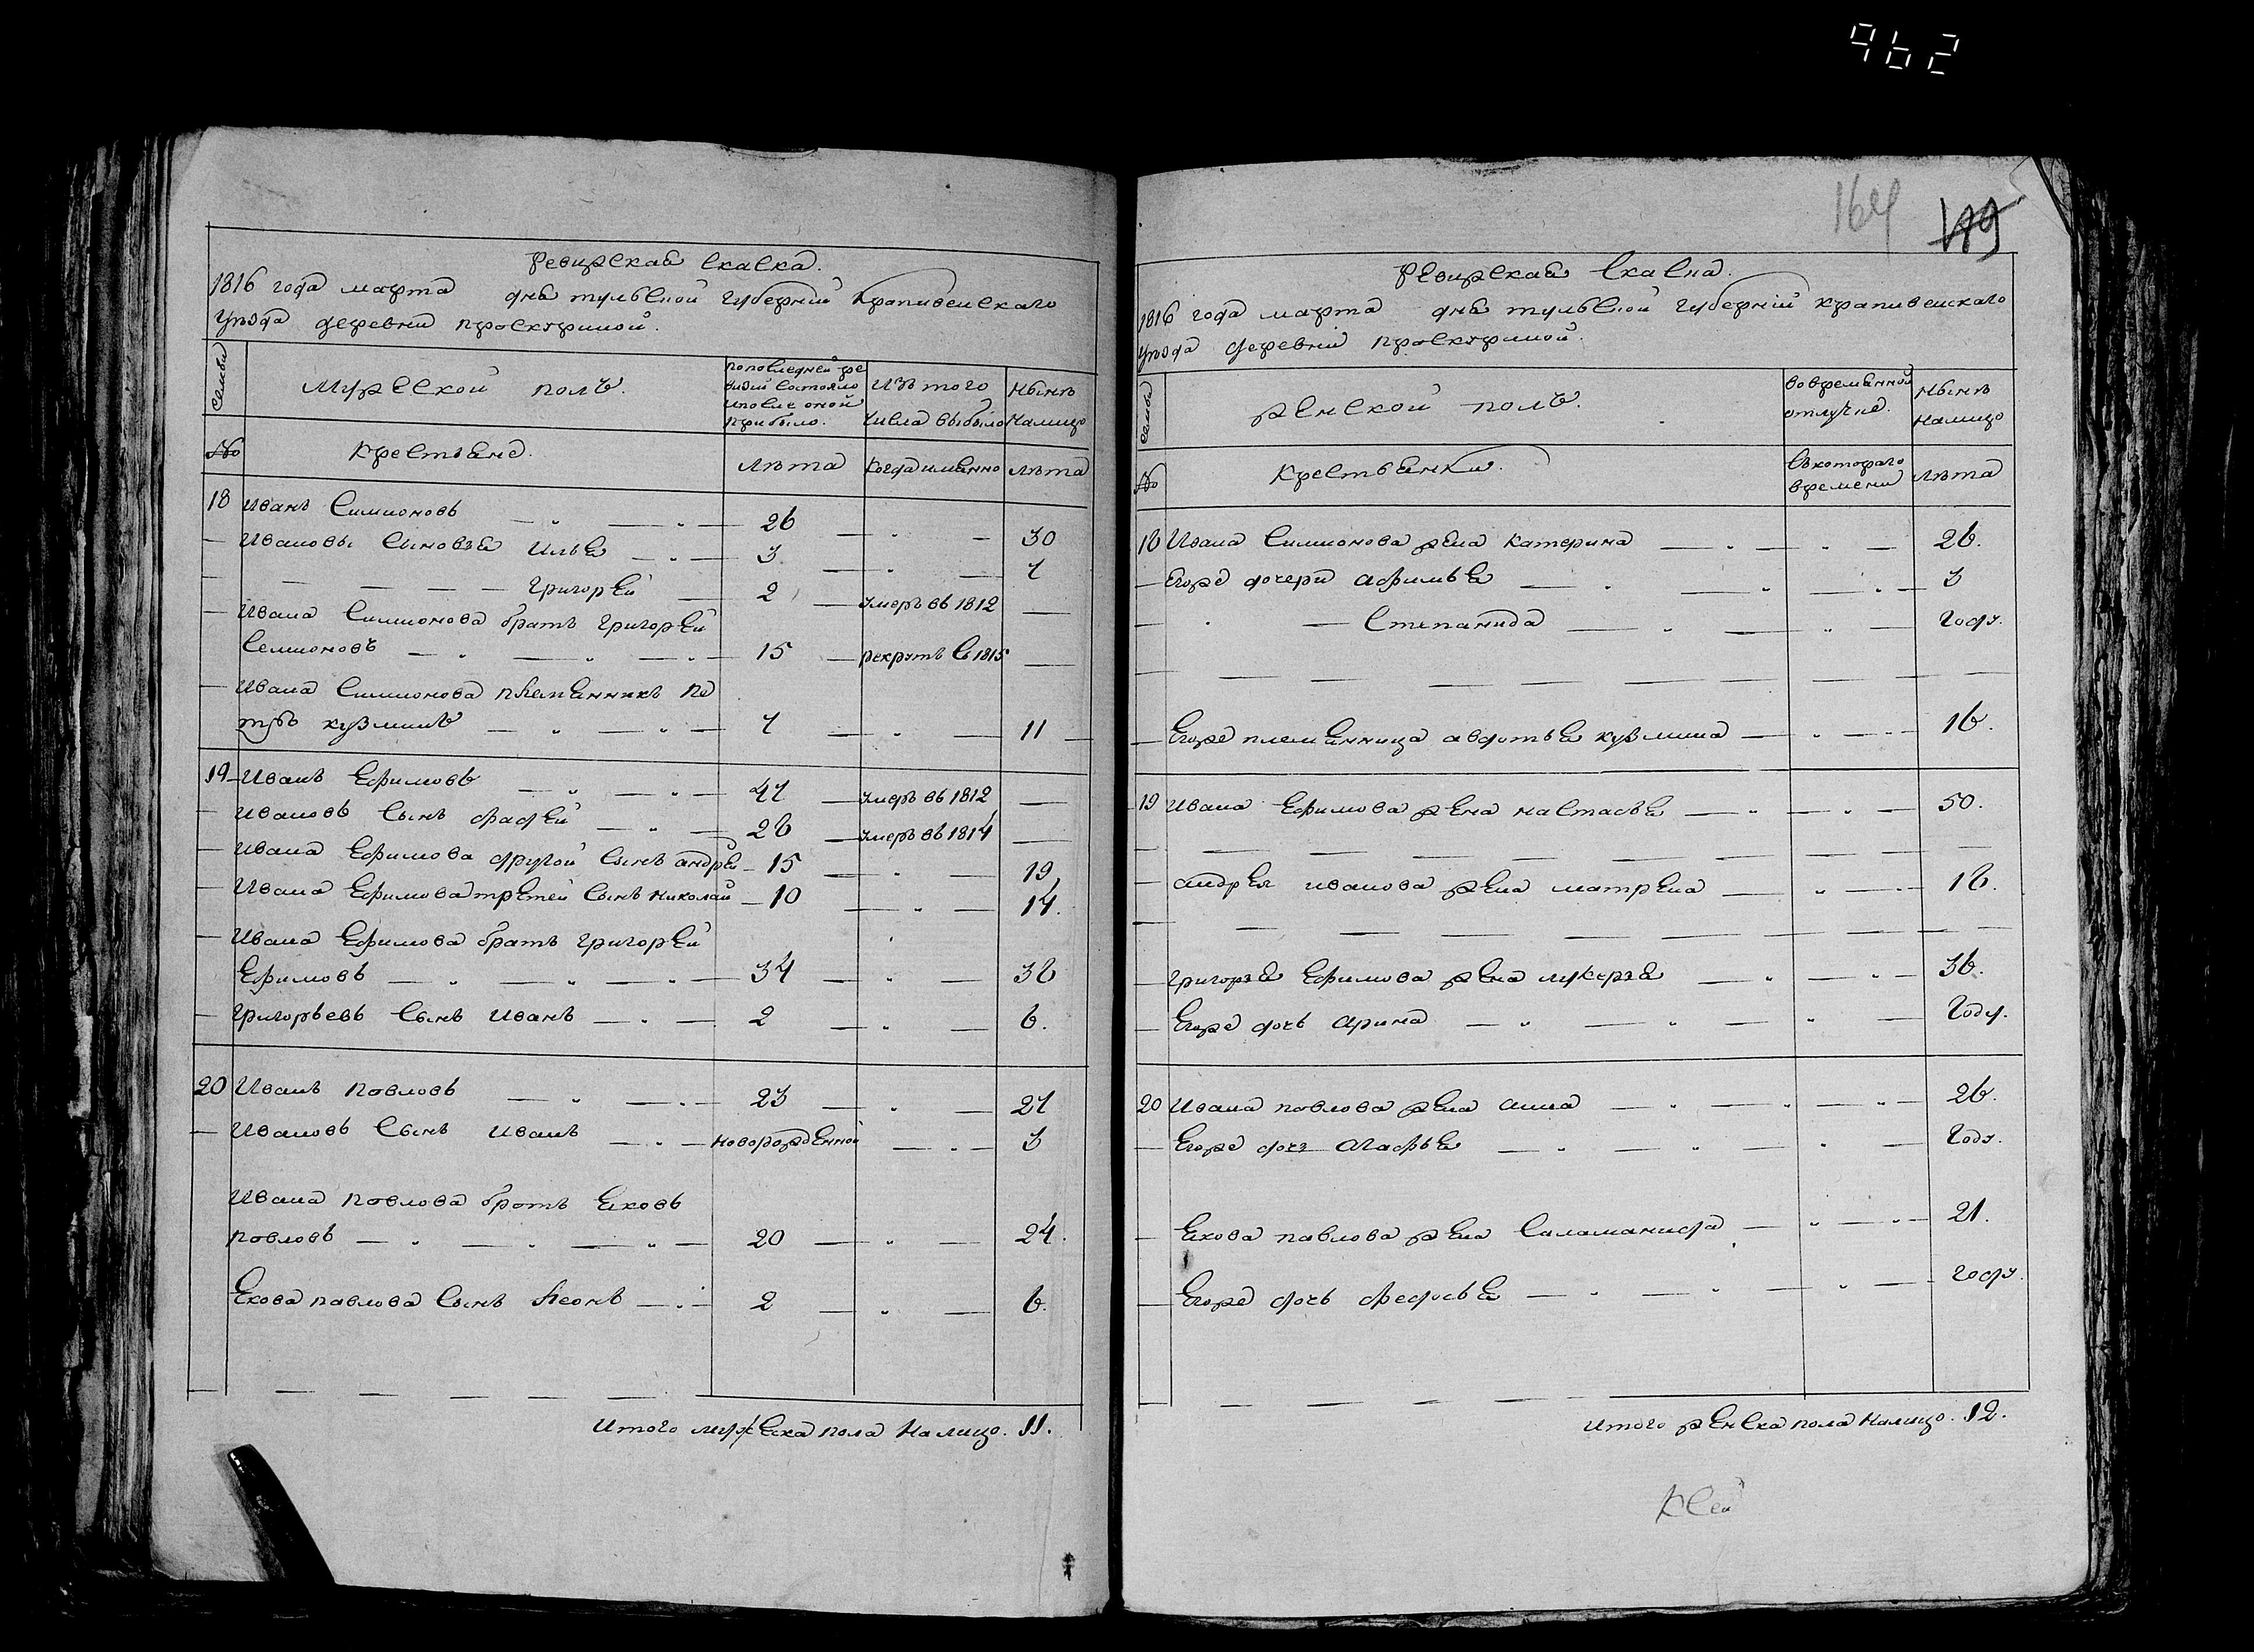 962
Ревижская скаска.
1816 года марта дня тульской губернии крапивенскаго
уѣзда деревни проскуриной.
Семьи
Мужеской полъ.
по последней ре
визии состояло
и после оной
прибыло.
Изъ того
числа выбыло
Нынѣ
налицо
№
Крестьяне.
Лѣта
когда имянно
лѣта
18 Иванъ Симионовъ 26 30
Ивановы сыновья Илья 3 7
Григорей 2 умеръ въ 1812
Ивана Симионова братъ григорей
Семионовъ 15 рекрутъ в 1815
Ивана Симионова племянникъ пе
тръ кузминъ 7 11
19 Иванъ Ефимовъ 47 умеръ въ 1812
Ивановъ сынъ фадей 26 умеръ въ 1814
Ивана Ефимова другой сынъ андрей 15 19
Ивана Ефимова третей сынъ николай 10 14.
Ивана Ефимова братъ григорей
Ефимовъ 34 38
григорьевъ сынъ иванъ 2 6.
20 Иванъ павловъ 23 27
Ивановъ сынъ иванъ новорожденной 3
Ивана павлова братъ яковъ
павловъ 20 24.
Якова павлова сынъ леонъ 2 6.
Итого мужеска пола налицо. 11.
164 119
Ревижская скаска.
1816 года марта дня тульской губернии крапивенскаго
уѣзда деревни проскуриной.
Семьи
женской полъ.
во временной
отлучке.
Нынѣ
налицо
№
Крестьянки.
съ котораго
времени
лѣта
18 Ивана Симионова жена катерина 26.
Егоже дочери афимья 3
Степанида году.
Егоже племянница авдотья кузмина 16.
19 Ивана Ефимова жена настасья 50.
андрея иванова жена матрена 18.
григорья Ефимова жена лукерья 36.
Егоже дочь арина году.
20 Ивана павлова жена анна 26.
Егоже дочь агафья году.
Якова павлова жена саламанида 21.
Егоже дочь федосья году.
итого женска пола налицо. 12.